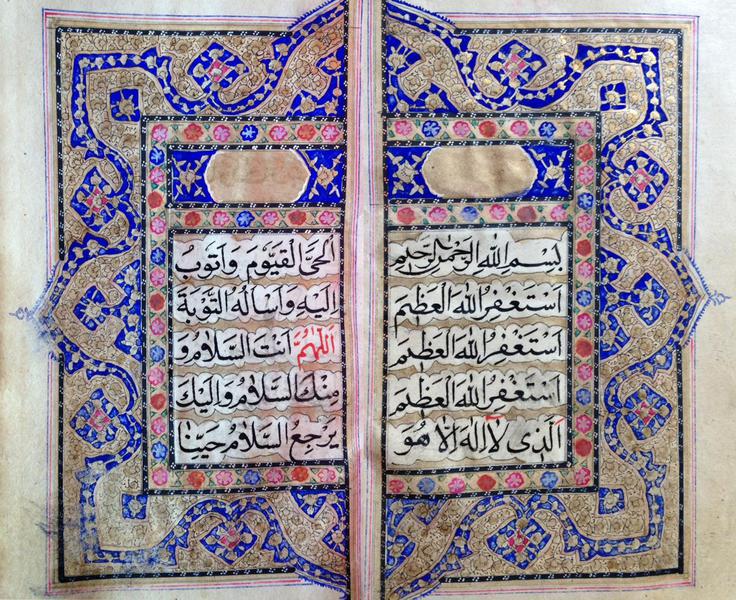 بِسْمِ اللهِ الرَّحْمٰنِ الرَّحِيمِ
اَسْتَغْفِرُ اللهَ الْعَظِيمَ
اَسْتَغْفِرُ اللهَ الْعَظِيمَ
اَسْتَغْفِرُ اللهَ الْعَظِيمَ
اَلَّذِى لَآ اِلٰهَ اِلَّا هُوَ
اَلْحَىَّ الْقَيُّومَ وَاَتُوبُ
اِلَيْهِ وَاَسْاَلُهُ التَّوْبَةَ
اَللّٰهُمَّ اَنْتَ السَّلَامُ وَ
مِنْكَ السَّلَامُ وَاِلَيْكَ
يَرْجِعُ السَّلَامُ حَيِّنَا